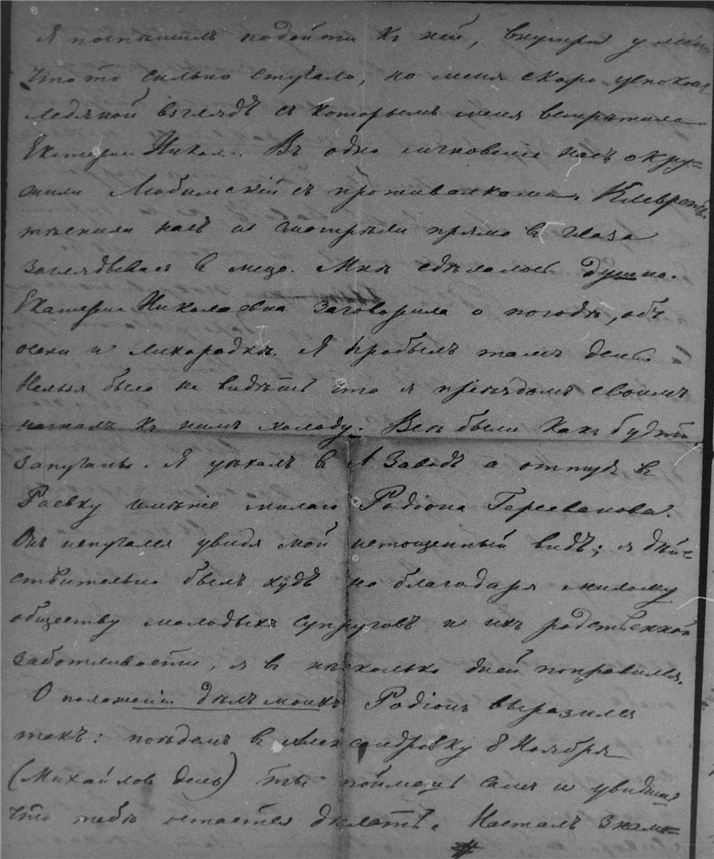 Я поспѣшилъ подойти къ ней, внутри у меня
что то сильно стучало, но меня скоро успокоил
ледяной взглядъ съ которымъ меня встрѣтила
Екатерин Никол. Въ одно мгновение насъ окру=
жили Любимскій съ проживалками. Клевреты
тѣснили насъ и смотрѣли прямо в глаза
заглядывая в лицо. Мнѣ сдѣлалось душно.
Екатерин Николаевна заговорила о погодѣ, объ
осени и лихорадкѣ. Я пробылъ тамъ день.
Нельзя было не видѣть что я приѣздомъ своимъ
нагналъ къ нимъ холоду. Всѣ были какъ будто
запуганы. Я уѣхалъ в А Заводъ а оттуда в
Раевку имѣніе милаго Родіона Гереванова.
Онъ испугался увидя мой истощенный видъ; я дѣй=
ствительно былъ худъ но благодаря милому
обществу молодыхъ супруговъ и ихъ родственной
заботливости, я в нѣсколько дней поправился.
О положеніи дѣлъ моихъ Родіонъ выразился
такъ: поѣдемъ в Александровку 8 Ноября
(Михайловъ день) ты поймешь самъ и увидишь
что тебѣ остается дѣлать. Насталъ знаме=